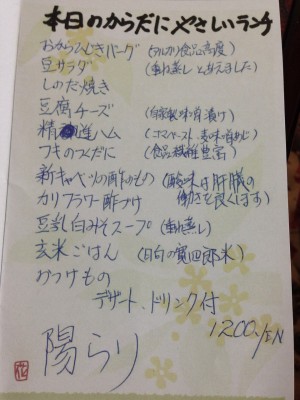 本日のからだにやさしいランチ
おからひじきバーグ (アルカリ食品高度)
豆サラダ (重ね蒸しと和えました)
しのだ焼き
豆腐チーズ (自家製味噌漬け)
精進ハム (ゴマペースト、麦味噌めじ)
フキのつくだに (食品繊維豊富)
新キャベツの酢のもの (酸味は肝臓の
働きを良くします)
カリフラワー酢づけ
豆乳白みそスープ (重ね蒸し)
玄米ごはん (日向の賀四郎米)
つけもの
デザート、ドリンク付
1200YEN
陽らり